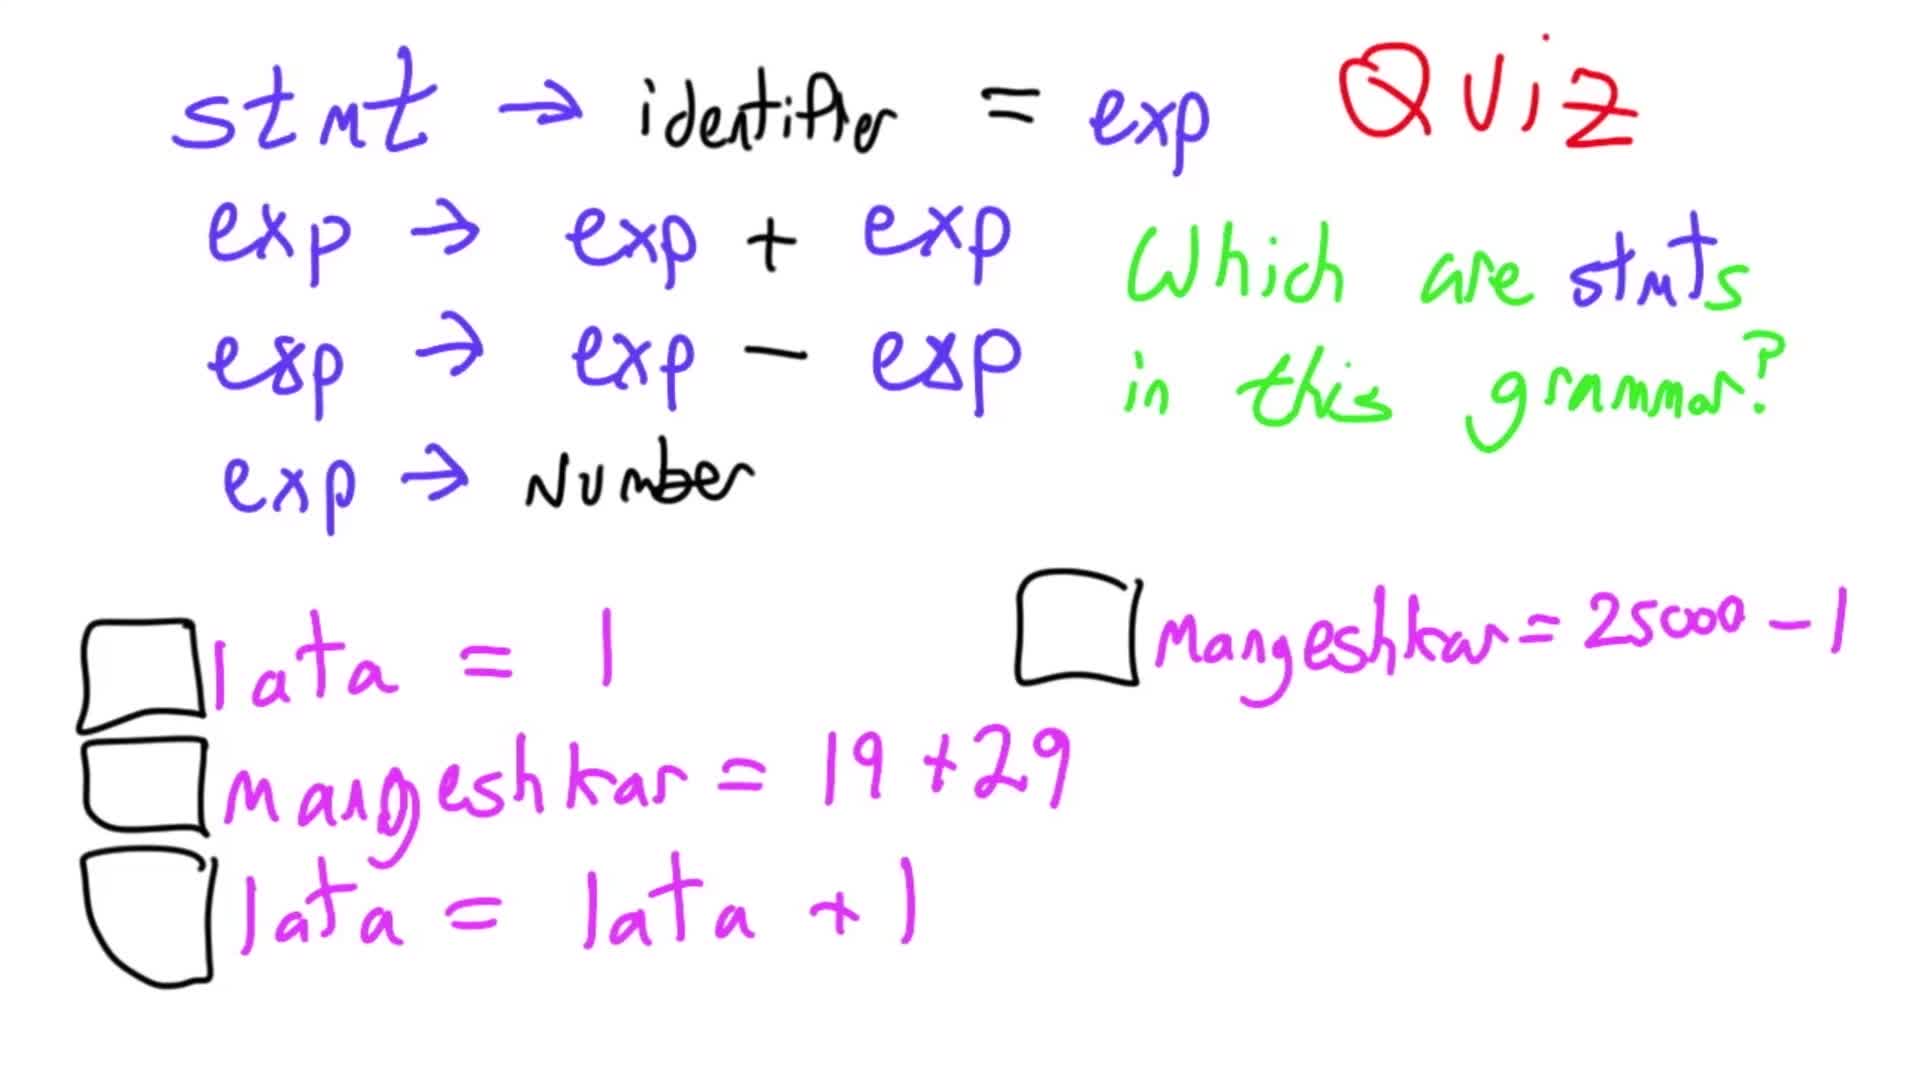 stmt → identifier = exp
Quiz
exp → exp + exp
exp → exp - exp
exp → number
Which are stmts
in this grammar?
lata = 1
mangeshkar = 19 + 29
lata = lata + 1
mangeshkar = 25000 - 1